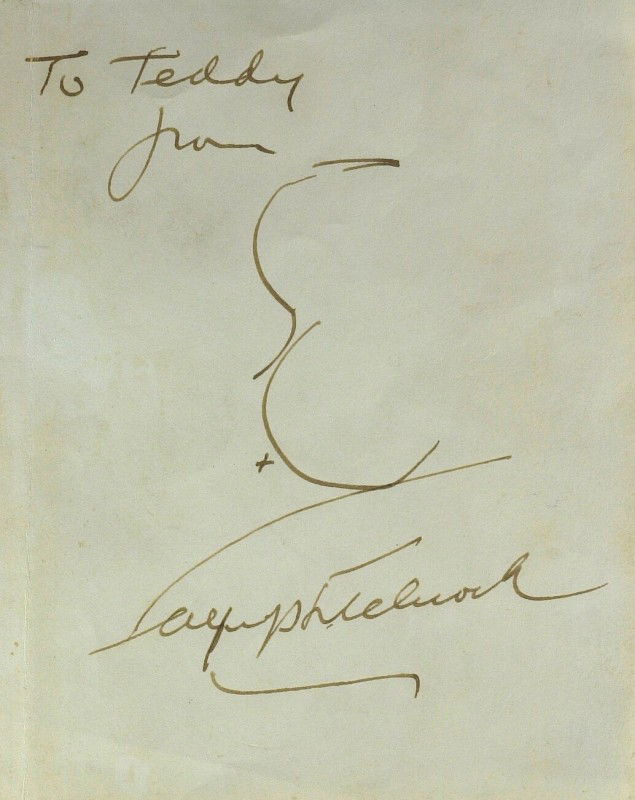 To Teddy
from
Alfred Hitchcock